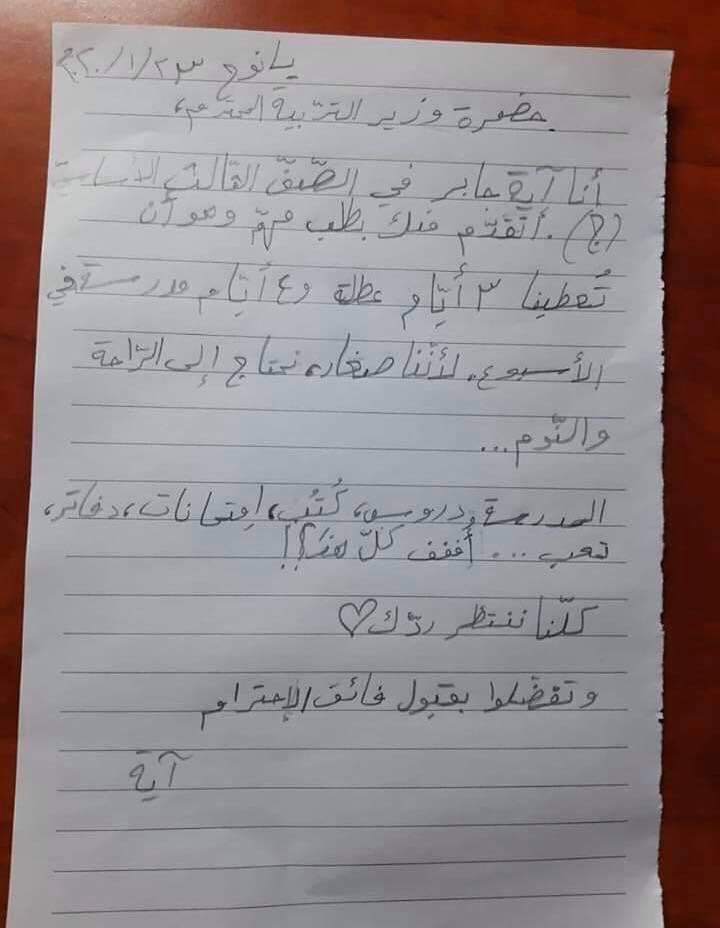 يانوح ٢٣/١/٢٠٢٠
حضرة وزير التربية المحترم،
أنا آية جابر في الصّفّ الثالث الأساسيّ
(ج). أتقدّم منك بطلب مهمّ وهو أن
تُعطينا ٣ أيّام عطلة و٤ أيّام مدرسة في
الأسبوع. لأنّنا صغار، نحتاج إلى الرّاحة
والنّوم...
المدرسة، دروس، كُتُب، امتحانات، دفاتر،
تعب... أففف كلّ هذا؟!!
كلّنا ننتظر ردّك♡
وتفضّلوا بقبول فائق الإحترام
آية